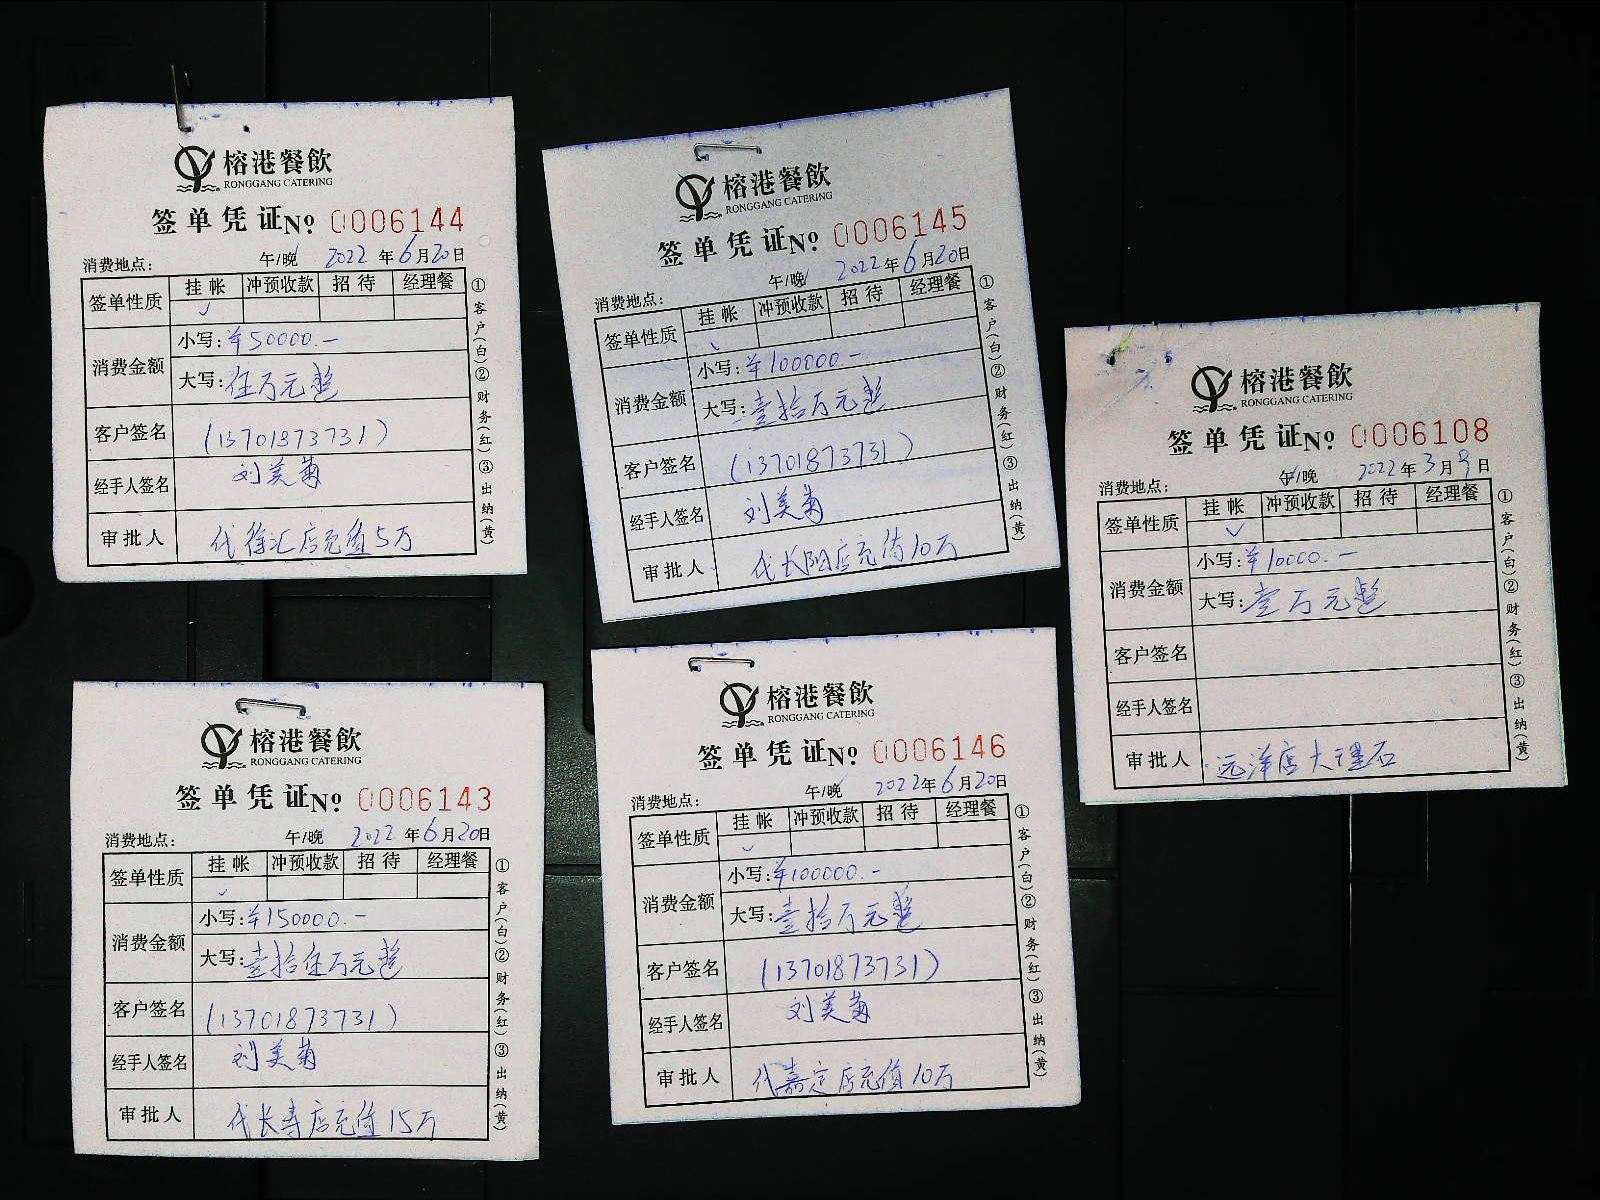 榕港餐飲
RONGGANG CATERING
签单凭证 № 0006144
消费地点: 午/晚 2022年6月20日
签单性质 挂帐 冲预收款 招待 经理餐
✓
消费金额 小写:¥50000.-
大写:伍万元整
客户签名 (13701873731)
经手人签名 刘美菊
审批人 代徐汇店充值5万
①客户(白)②财务(红)③出纳(黄)
榕港餐飲
RONGGANG CATERING
签单凭证 № 0006145
消费地点: 午/晚 2022年6月20日
签单性质 挂帐 冲预收款 招待 经理餐
✓
消费金额 小写:¥100000.-
大写:壹拾万元整
客户签名 (13701873731)
经手人签名 刘美菊
审批人 代长阳店充值10万
①客户(白)②财务(红)③出纳(黄)
榕港餐飲
RONGGANG CATERING
签单凭证 № 0006108
消费地点: 午/晚 2022年3月9日
签单性质 挂帐 冲预收款 招待 经理餐
✓
消费金额 小写:¥10000.-
大写:壹万元整
客户签名
经手人签名
审批人 远洋店大理石
①客户(白)②财务(红)③出纳(黄)
榕港餐飲
RONGGANG CATERING
签单凭证 № 0006143
消费地点: 午/晚 2022年6月20日
签单性质 挂帐 冲预收款 招待 经理餐
✓
消费金额 小写:¥150000.-
大写:壹拾伍万元整
客户签名 (13701873731)
经手人签名 刘美菊
审批人 代长寿店充值15万
①客户(白)②财务(红)③出纳(黄)
榕港餐飲
RONGGANG CATERING
签单凭证 № 0006146
消费地点: 午/晚 2022年6月20日
签单性质 挂帐 冲预收款 招待 经理餐
✓
消费金额 小写:¥100000.-
大写:壹拾万元整
客户签名 (13701873731)
经手人签名 刘美菊
审批人 代嘉定店充值10万
①客户(白)②财务(红)③出纳(黄)